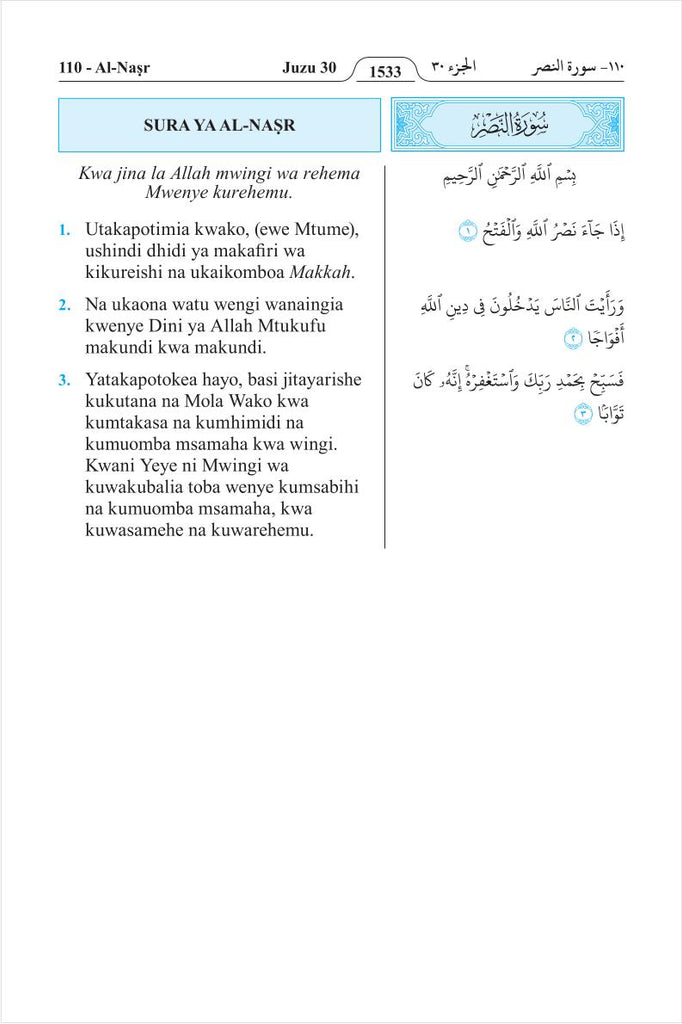 110 - Al-Naṣr Juzu 30 1533 الجزء ٣٠ ١١٠- سورة النصر
SURA YA AL-NAṢR
Kwa jina la Allah mwingi wa rehema
Mwenye kurehemu.
1. Utakapotimia kwako, (ewe Mtume),
ushindi dhidi ya makafiri wa
kikureishi na ukaikomboa Makkah.
2. Na ukaona watu wengi wanaingia
kwenye Dini ya Allah Mtukufu
makundi kwa makundi.
3. Yatakapotokea hayo, basi jitayarishe
kukutana na Mola Wako kwa
kumtakasa na kumhimidi na
kumuomba msamaha kwa wingi.
Kwani Yeye ni Mwingi wa
kuwakubalia toba wenye kumsabihi
na kumuomba msamaha, kwa
kuwasamehe na kuwarehemu.
سُورَةُ النَّصْرِ
بِسْمِ ٱللَّهِ ٱلرَّحْمَٰنِ ٱلرَّحِيمِ
إِذَا جَآءَ نَصْرُ ٱللَّهِ وَٱلْفَتْحُ ١
وَرَأَيْتَ ٱلنَّاسَ يَدْخُلُونَ فِى دِينِ ٱللَّهِ
أَفْوَاجًا ٢
فَسَبِّحْ بِحَمْدِ رَبِّكَ وَٱسْتَغْفِرْهُۚ إِنَّهُۥ كَانَ
تَوَّابًۢا ٣